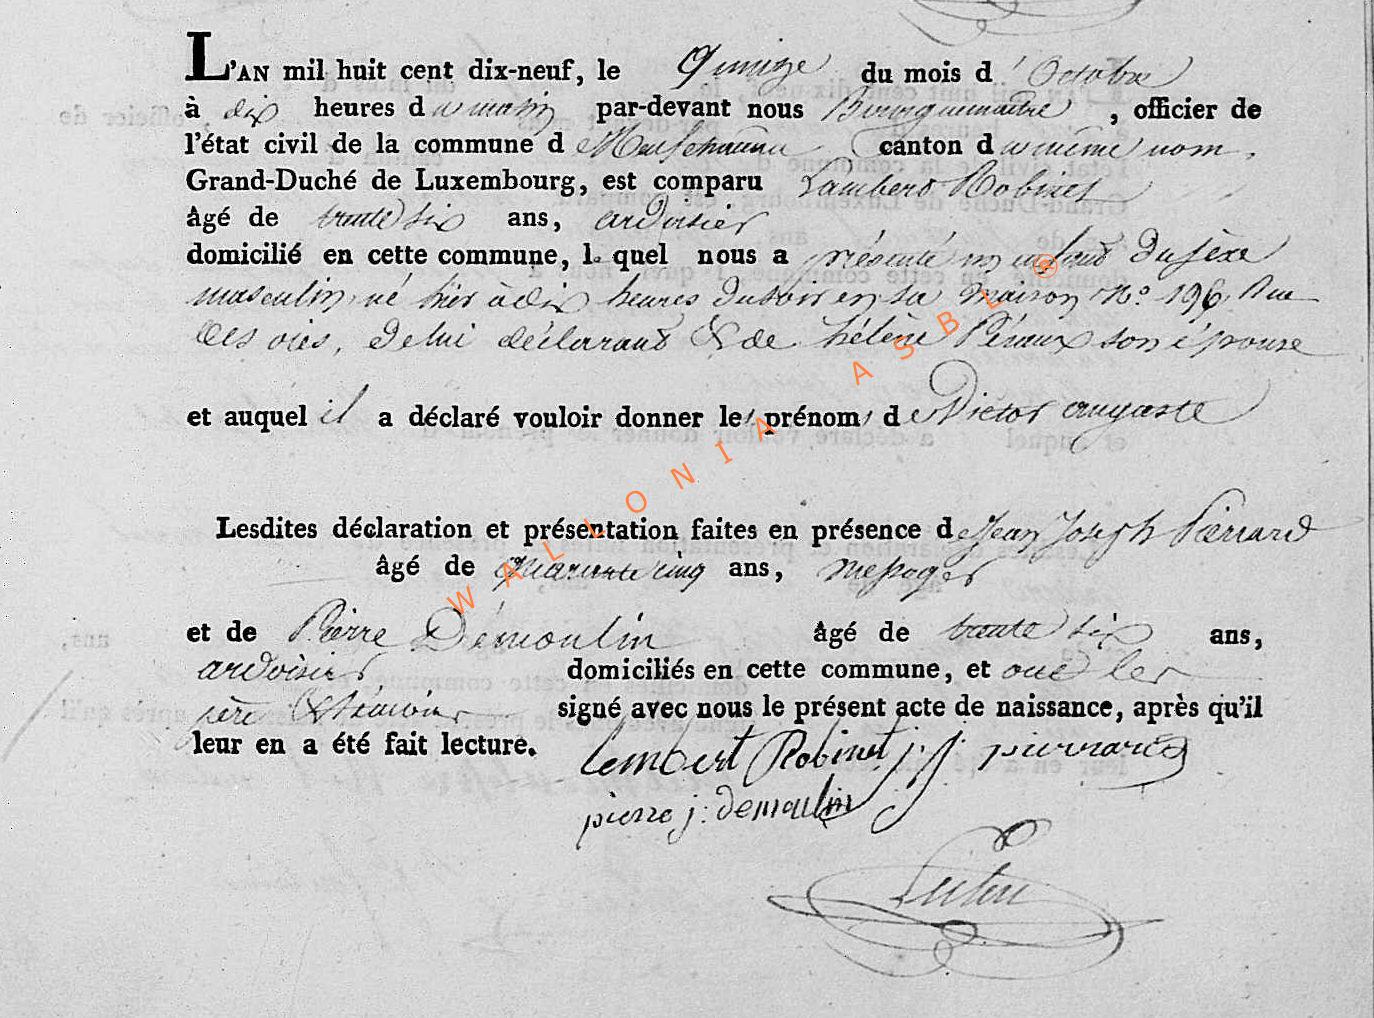 L'AN mil huit cent dix-neuf, le Quinze du mois d'Octobre
à dix heures du matin par-devant nous Bourguemaitre, officier de
l'état civil de la commune de Neufchateau canton du même nom,
Grand-Duché de Luxembourg, est comparu Lambert Robinet
âgé de trente six ans, ardoisier
domicilié en cette commune, lequel nous a présenté un enfant du sèxe
masculin, né hier à dix heures du soir en sa maison No. 196, Rue
des oies, de lui déclarant & de hélène son épouse
et auquel il a déclaré vouloir donner les prénoms de Victor auguste
Lesdites déclaration et présentation faites en présence de Jean Joseph Pierrard
âgé de quarante cinq ans, messager
et de Pierre Démoulin âgé de trente six ans,
ardoisier domiciliés en cette commune, et ont les
père & témoins signé avec nous le présent acte de naissance, après qu'il
leur en a été fait lecture.
lembert Robinet j. j. pierrard
pierre j. demoulin
@ WALLONIA ASBL